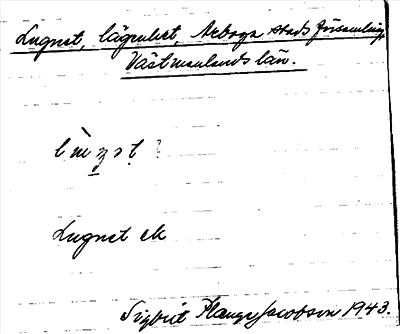 Lugnet, lägenhet, Arboga stads församling,
Västmanlands län.
Lugnet
Sigbrit Plænge Jacobson 1943.